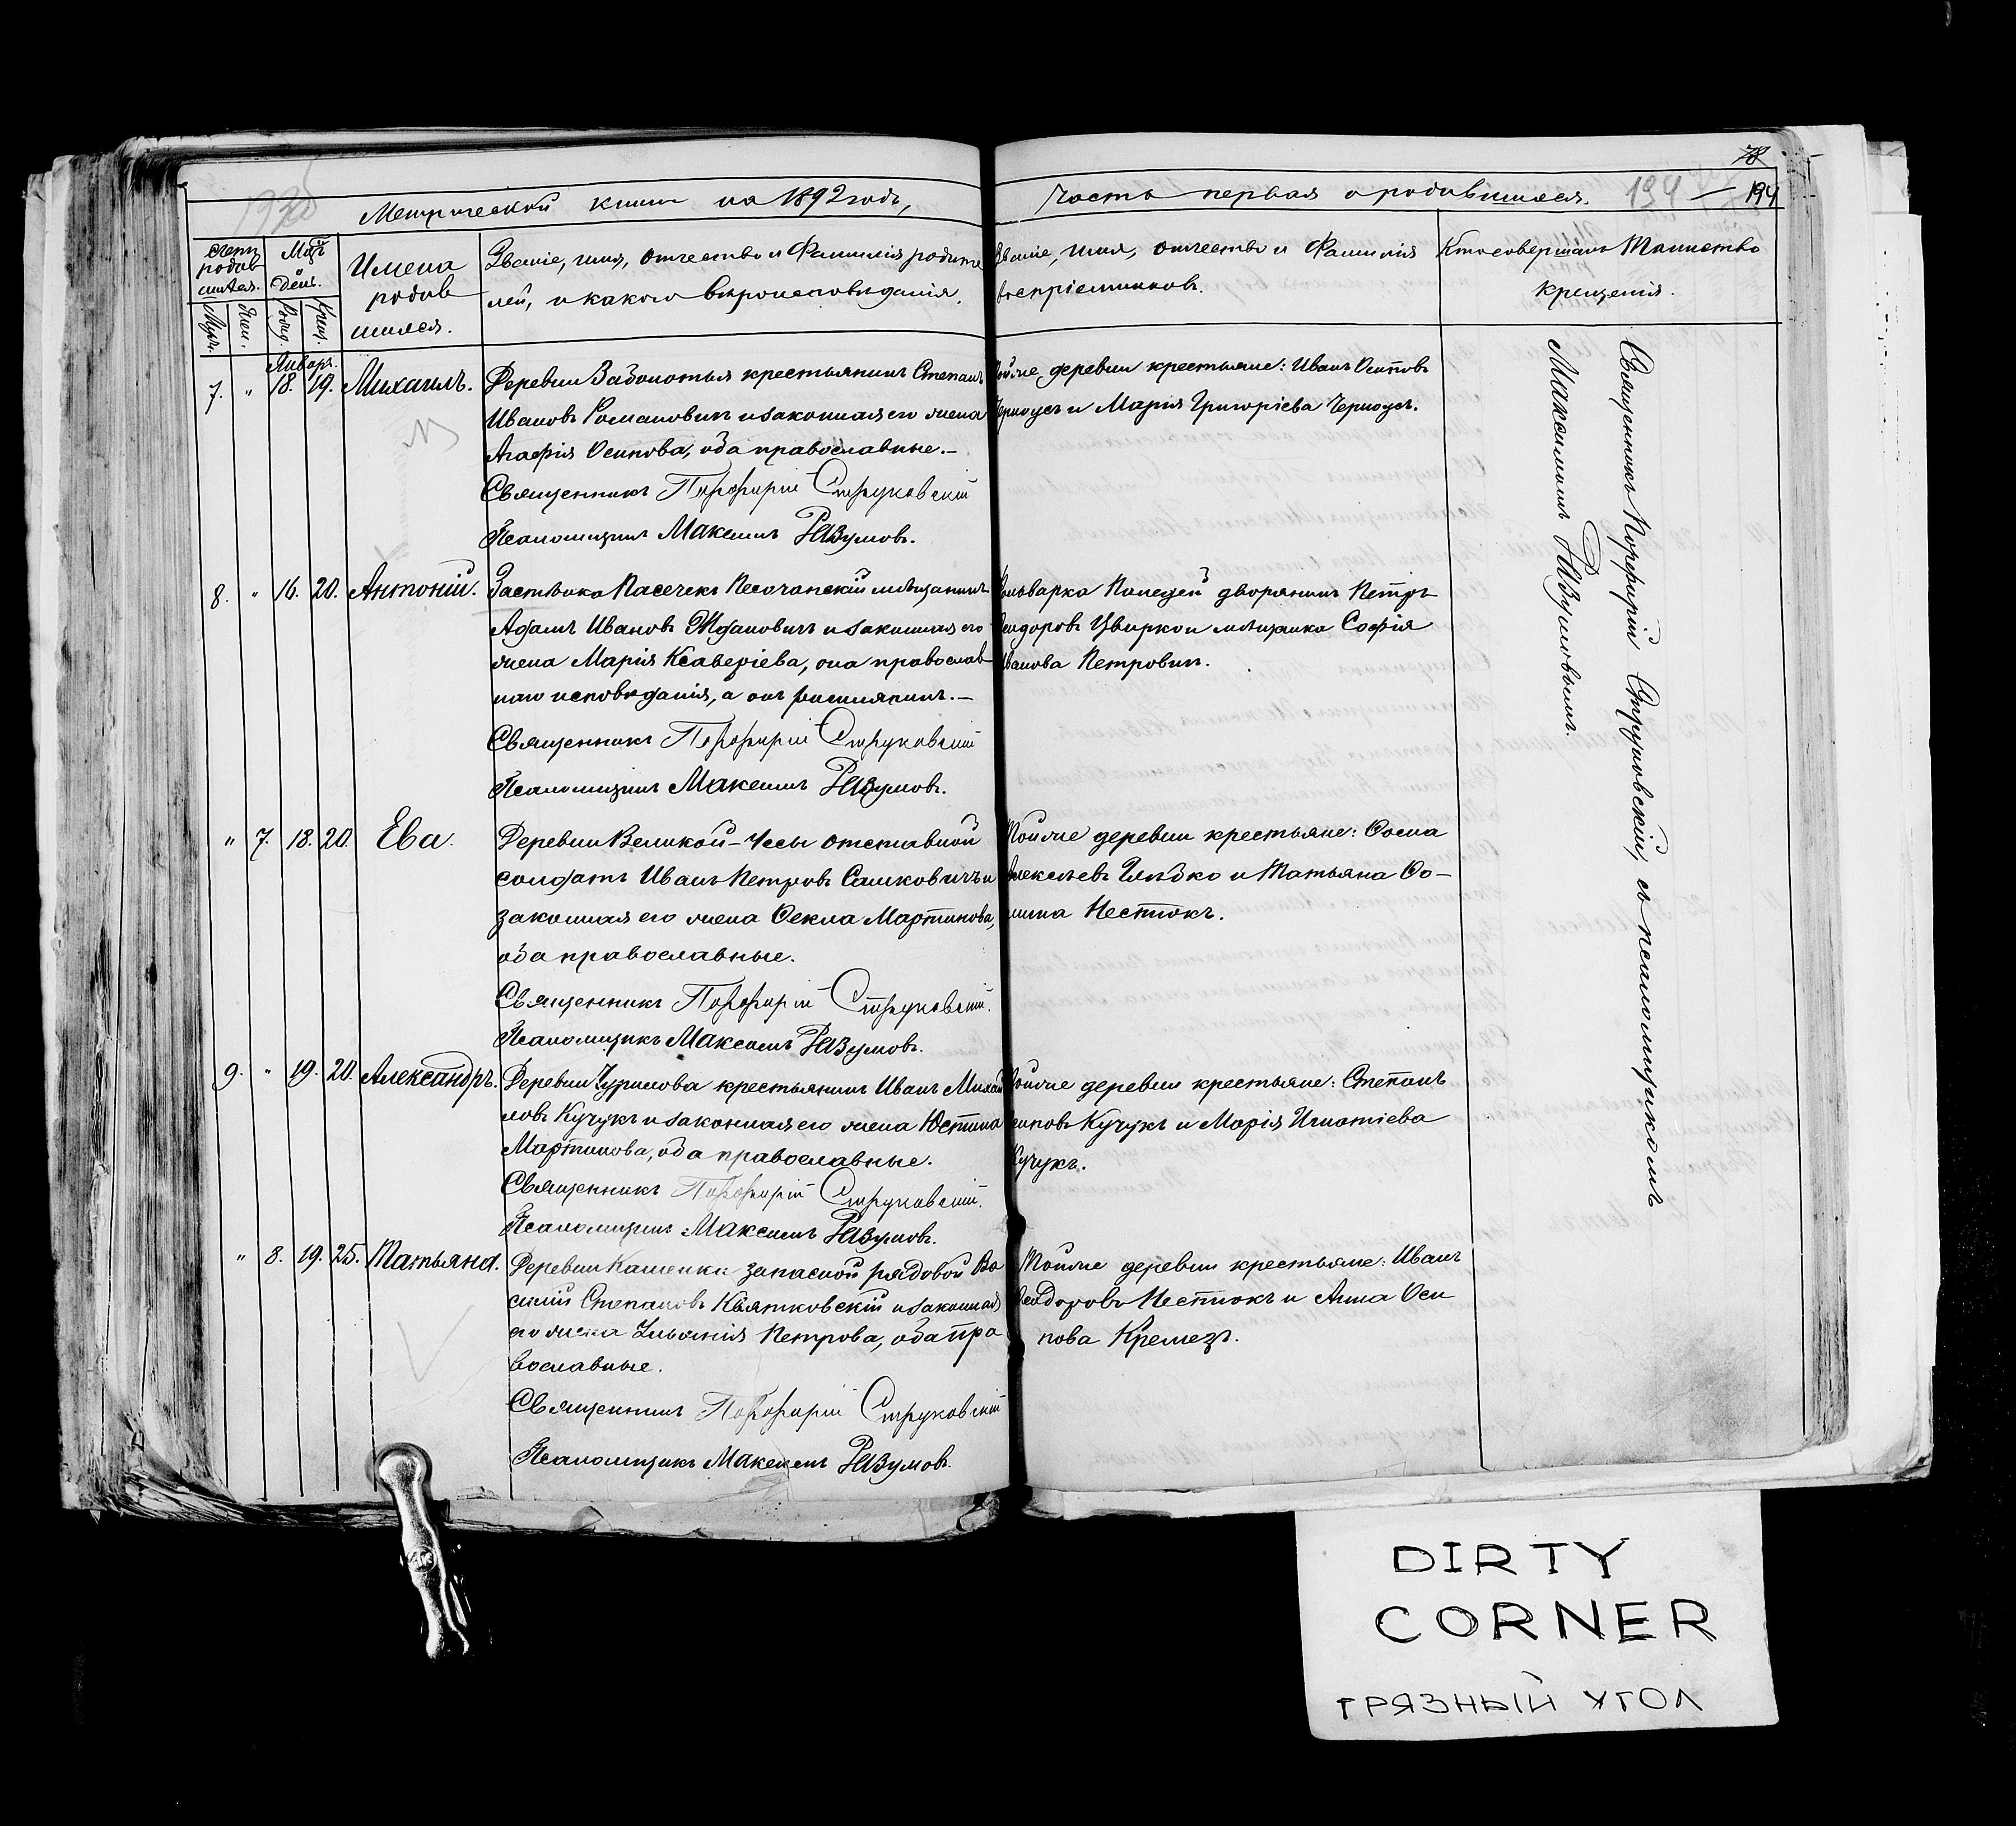 78
Метрической книги на 1892 годъ,
Часть первая о родившихся. 194 — 194
Счетъ родившихся.
Муж.
Жен.
Мѣс. День.
Рожд.
Крещ.
Имена родившихся.
Званіе, имя, отчество и Фамилія родите
лей, и какого вѣроисповѣданія.
Званіе, имя, отчество и Фамилія
воспріемниковъ.
Кто совершалъ Таинство
крещенія.
Январь.
7. " 18. 19. Михаилъ.
Деревни Заболотья крестьянинъ Степанъ
Ивановъ Романовичъ и законная его жена
Агафія Осипова, оба православные.—
Священникъ Порфирій Струковскій
Псаломщикъ Максимъ Разумовъ.
Тойже деревни крестьяне: Иванъ Осиповъ
Черноусъ и Марія Григоріева Черноусъ.
8. " 16. 20. Антоній.
Застѣнка Пасечекъ Песочанскій мѣщанинъ
Адамъ Ивановъ Ждановичъ и законная его
жена Марія Ксаверіева, она православ
наго исповѣданія, а онъ римлянинъ.—
Священникъ Порфирій Струковскій
Псаломщикъ Максимъ Разумовъ.
Фольварка дворянинъ Петръ
Ѳеодоровъ Цвирко и мѣщанка Софія
Иванова Петровичъ.
" 7. 18. 20. Ева.
Деревни Великой-Чесы отставной
солдатъ Иванъ Петровъ Сашковичъ и
законная его жена Ѳекла Мартинова,
оба православные.
Священникъ Порфирій Струковскій.
Псаломщикъ Максимъ Разумовъ.
Тойже деревни крестьяне: Сосма
Алексѣевъ Глѣбко и Татьяна Ѳо-
мина Нестюкъ.
9. " 19. 20. Александръ.
Деревни Чурилова крестьянинъ Иванъ Михаи
ловъ Кучукъ и законная его жена Юстина
Мартинова, оба православные.
Священникъ Порфирій Струковскій.
Псаломщикъ Максимъ Разумовъ.
Тойже деревни крестьяне: Степанъ
Осиповъ Кучукъ и Марія Игнатіева
Кучукъ.
" 8. 19. 25. Татьяна.
Деревни Кашенки запасной рядовой Ва
силій Степановъ Квятковскій и законная
его жена Ульянія Петрова, оба пра
вославные.
Священникъ Порфирій Струковскій
Псаломщикъ Максимъ Разумовъ.
Тойже деревни крестьяне: Иванъ
Ѳеодоровъ Нестюкъ и Анна Оси
пова Кремезъ.
Священникъ Порфирій Струковскій, съ псаломщикомъ
Максимомъ Разумовымъ.
DIRTY
CORNER
ГРЯЗНЫЙ УГОЛ